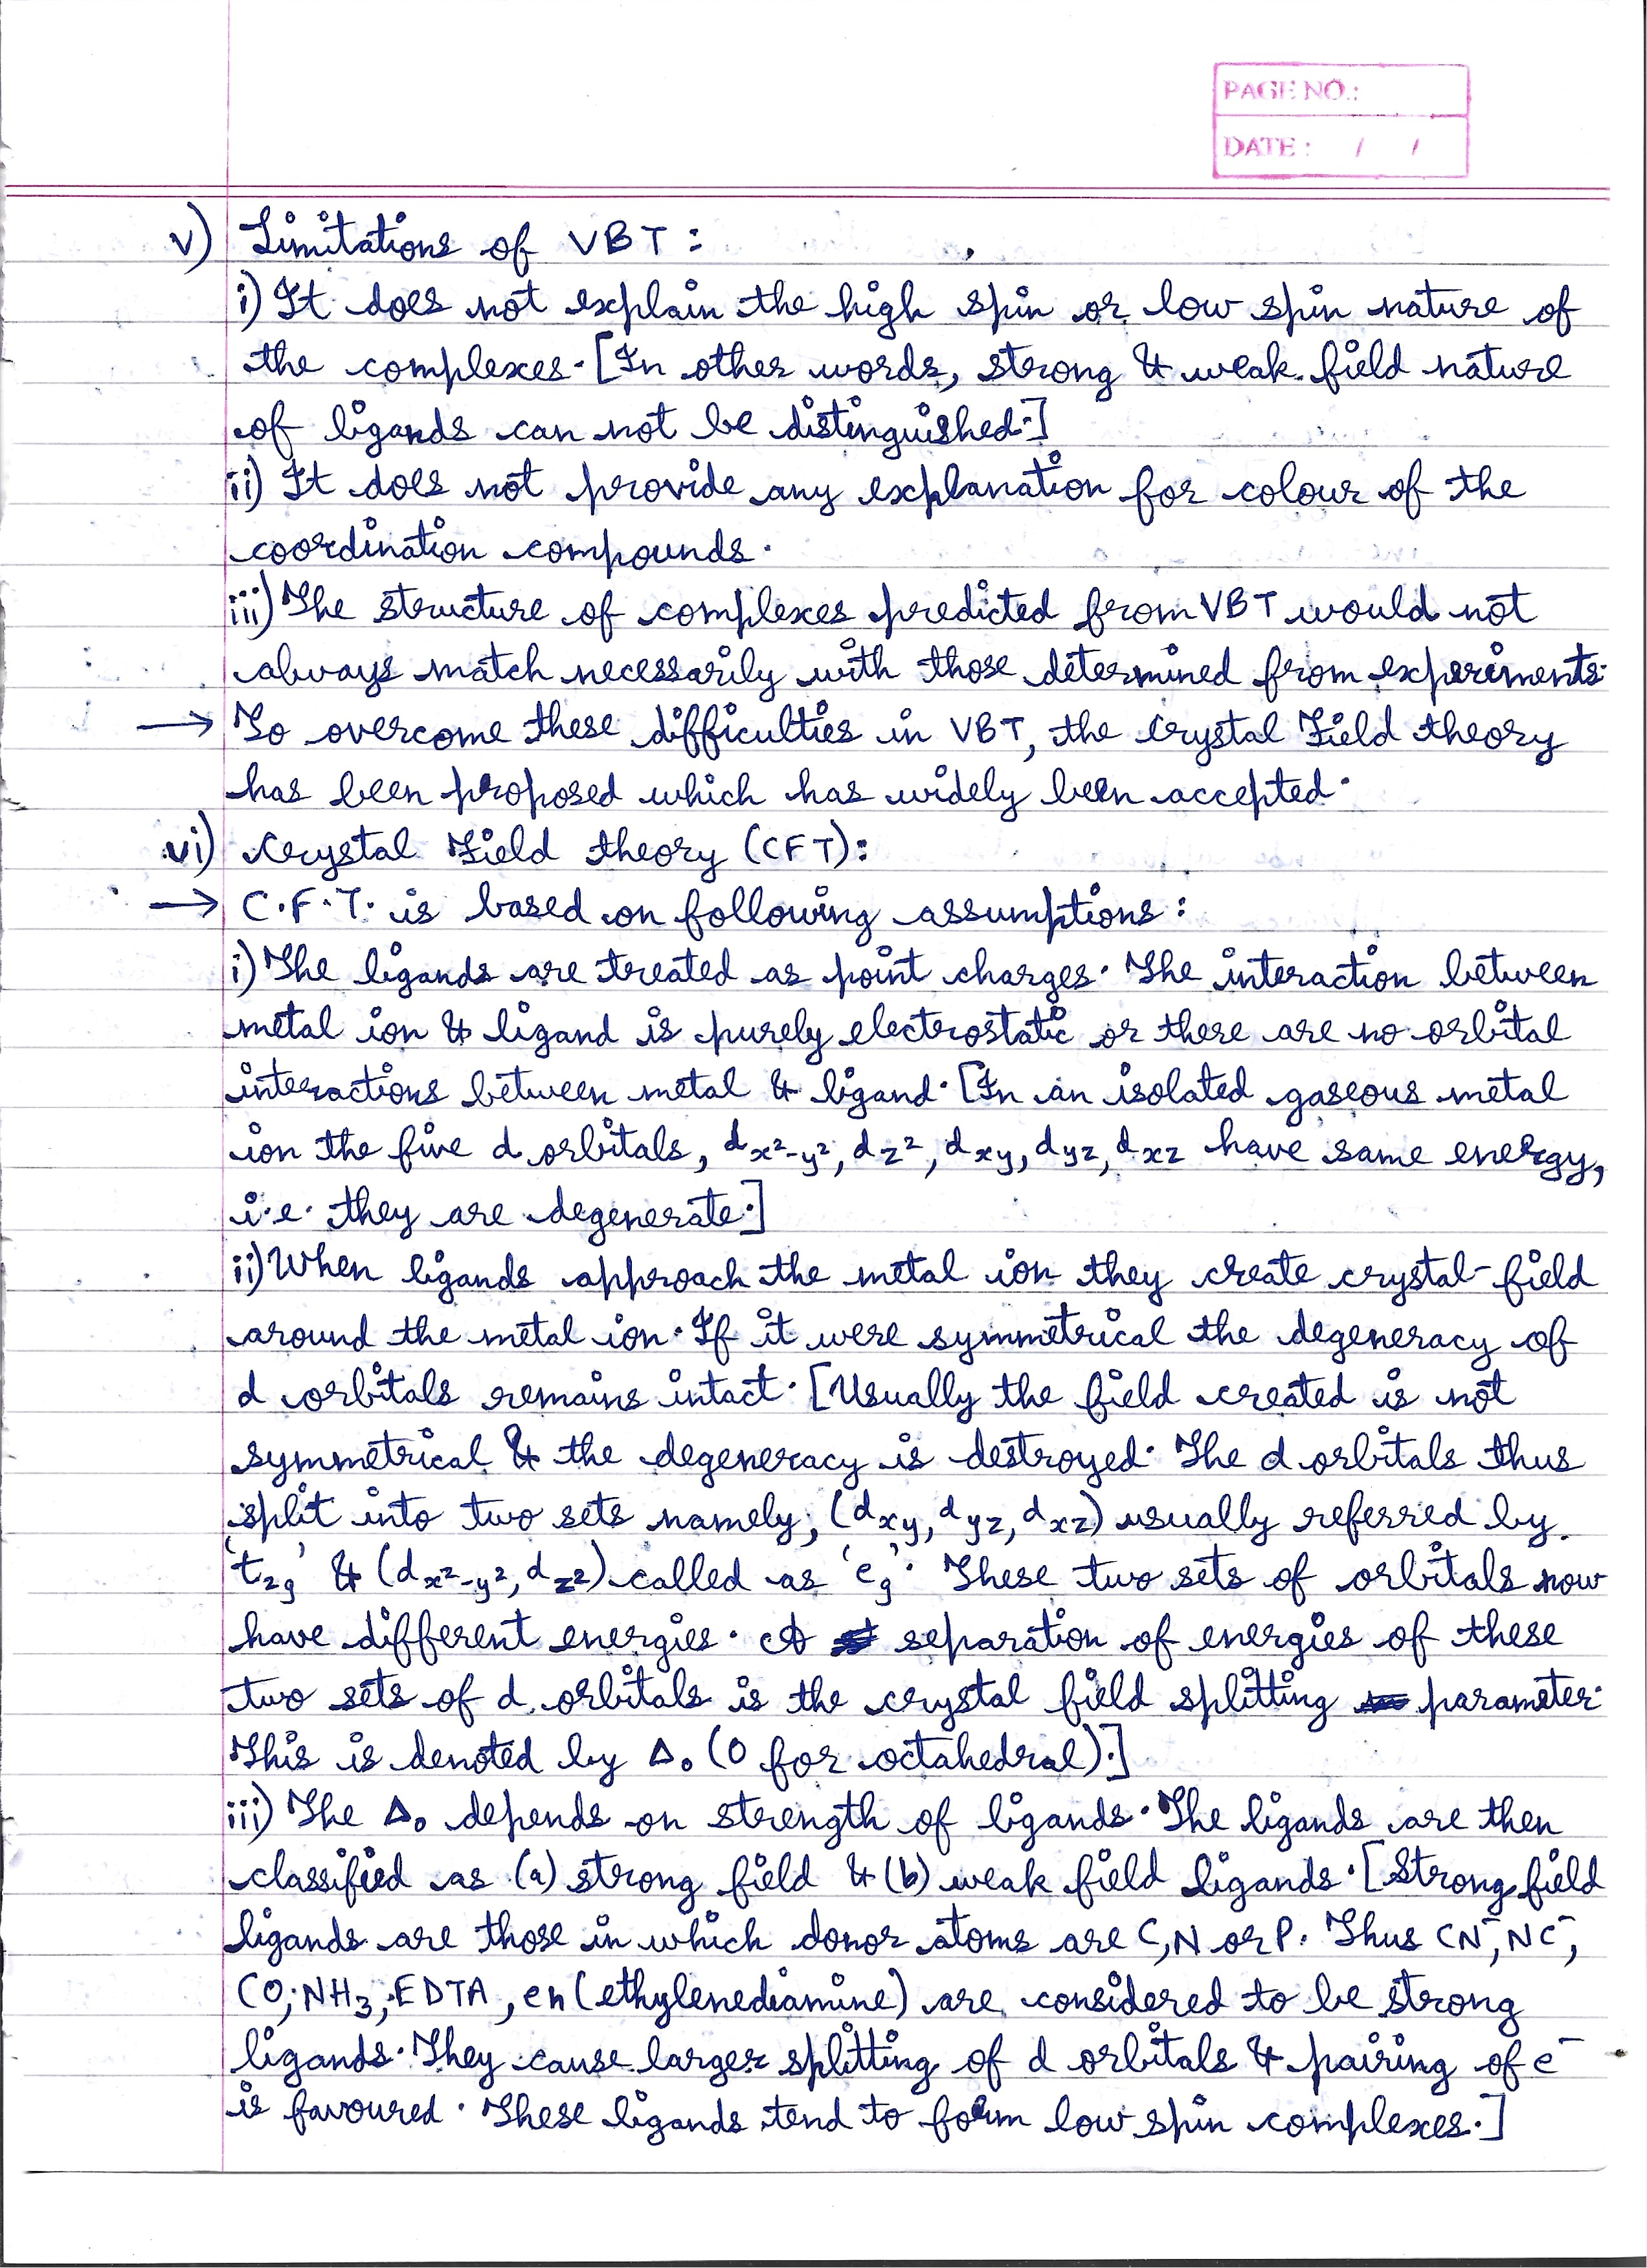 PAGE NO.:
DATE: / /
v) Limitations of VBT:
i) It does not explain the high spin or low spin nature of
the complexes. [In other words, strong & weak field nature
of ligands can not be distinguished.]
ii) It does not provide any explanation for colour of the
coordination compounds.
iii) The structure of complexes predicted from VBT would not
always match necessarily with those determined from experiments.
→ To overcome these difficulties in VBT, the Crystal Field theory
has been proposed which has widely been accepted.
vi) Crystal Field theory (CFT):
→ C.F.T. is based on following assumptions:
i) The ligands are treated as point charges. The interaction between
metal ion & ligand is purely electrostatic or there are no orbital
interactions between metal & ligand. [In an isolated gaseous metal
ion the five d orbitals, dx²-y², dz², dxy, dyz, dxz have same energy,
i.e. they are degenerate.]
ii) When ligands approach the metal ion they create crystal-field
around the metal ion. If it were symmetrical the degeneracy of
d orbitals remains intact. [Usually the field created is not
symmetrical & the degeneracy is destroyed. The d orbitals thus
split into two sets namely, (dxy, dyz, dxz) usually referred by
't₂g' & (dx²-y², dz²) called as 'eg'. These two sets of orbitals now
have different energies. A separation of energies of these
two sets of d orbitals is the crystal field splitting parameter.
This is denoted by Δ₀ (O for octahedral).]
iii) The Δ₀ depends on strength of ligands. The ligands are then
classified as (a) strong field & (b) weak field ligands. [Strong field
ligands are those in which donor atoms are C, N or P. Thus CN⁻, NC⁻,
CO, NH₃, EDTA, en (ethylenediamine) are considered to be strong
ligands. They cause larger splitting of d orbitals & pairing of e⁻
is favoured. These ligands tend to form low spin complexes.]